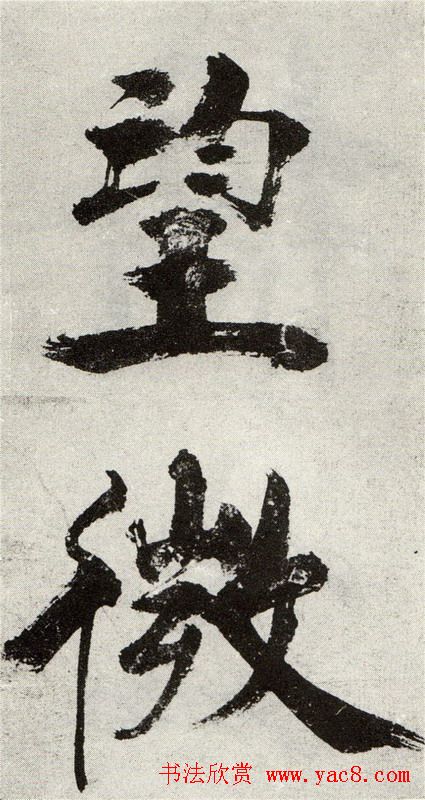 望
微
书法欣赏 www.yac8.com